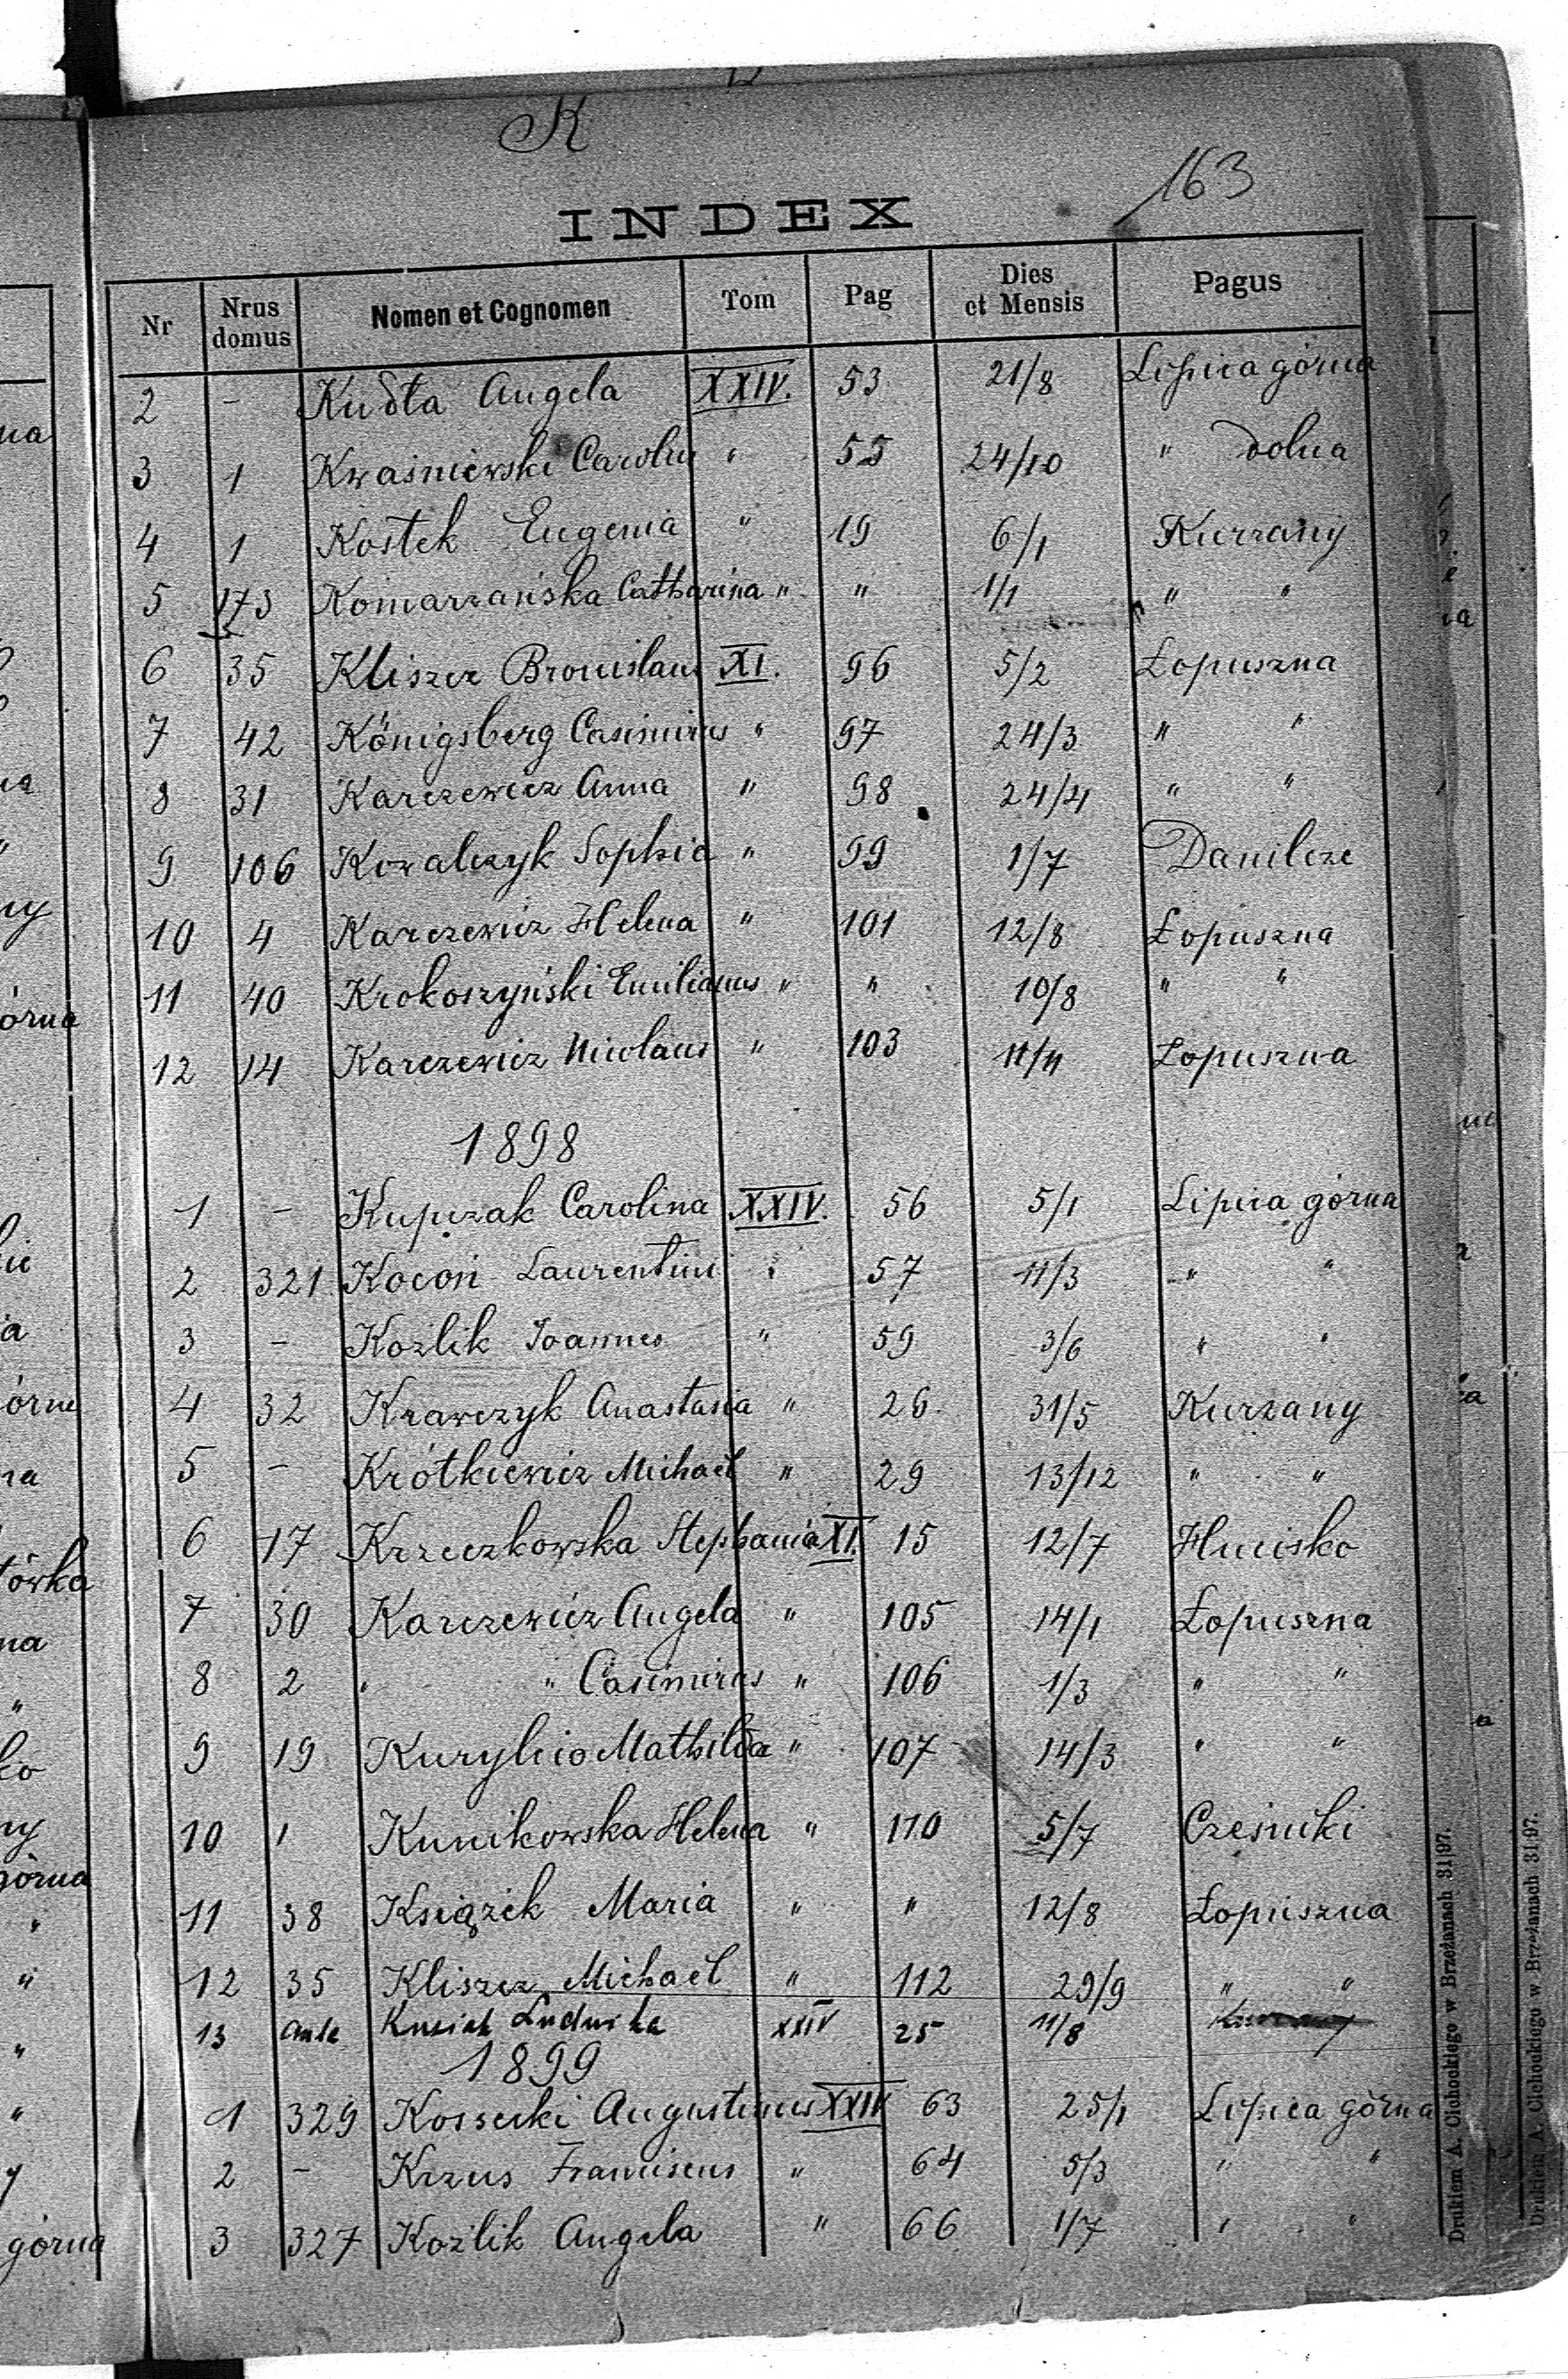 K
163
INDEX
Nr Nrus domus Nomen et Cognomen Tom Pag Dies et Mensis Pagus
2 - Kudła Angela XXIV. 53 21/8 Lipica górna
3 1 Kwaśniewski Carolus " 55 24/10 " dolna
4 1 Kostek Eugenia " 19 6/1 Kurzany
5 173 Komarzańska Catharina " " 1/1 " "
6 35 Kliszcz Bronislaus XI. 96 5/2 Łopuszna
7 42 Königsberg Casimirus " 97 24/3 " "
8 31 Karczewicz Anna " 98 24/4 " "
9 106 Kowalczyk Sophia " 99 1/7 Danilcze
10 4 Karczewicz Helena " 101 12/8 Łopuszna
11 40 Krokoszyński Emilianus " " 10/8 " "
12 14 Karczewicz Nicolaus " 103 11/11 Łopuszna
1898
1 - Kupczak Carolina XXIV. 56 5/1 Lipica górna
2 321 Kocoń Laurentius " 57 11/3 " "
3 - Koźlik Joannes " 59 3/6 " "
4 32 Krawczyk Anastasia " 26 31/5 Kurzany
5 - Krótkiewicz Michaël " 29 13/12 " "
6 17 Krzeczkowska Stephania XI. 15 12/7 Hucisko
7 30 Karczewicz Angela " 105 14/1 Łopuszna
8 2 " " Casimirus " 106 1/3 " "
9 19 Kuryłcio Mathilda " 107 14/3 " "
10 1 Kunikowska Helena " 110 5/7 Cześniki
11 38 Książek Maria " " 12/8 Łopuszna
12 35 Kliszcz Michaël " 112 29/9 " "
13 Kusiak Ludwika XXIV 25 11/8 Kurzany
1899
1 329 Kossecki Augustinus XXIV 63 25/1 Lipica górna
2 - Krzus Franciscus " 64 5/3 " "
3 327 Koźlik Angela " 66 1/7 " "
Drukiem A. Cichockiego w Brzeżanach 31|97.
Drukiem A. Cichockiego w Brzeżanach 31|97.